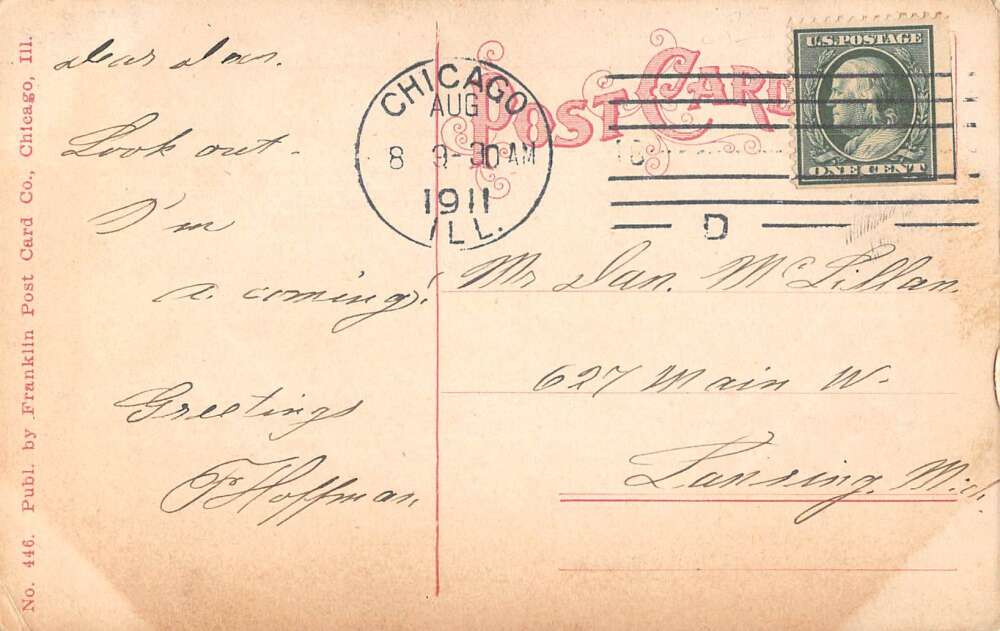 Dear Dan.
Look out -
I'm
a coming!
Greetings
F Hoffman
POST CARD
CHICAGO
AUG
8 9-30 AM
1911
ILL.
D
U.S. POSTAGE
ONE CENT
Mr Dan. McLillan.
627 Main W.
Lansing, Mich.
No. 446. Publ. by Franklin Post Card Co., Chicago, Ill.